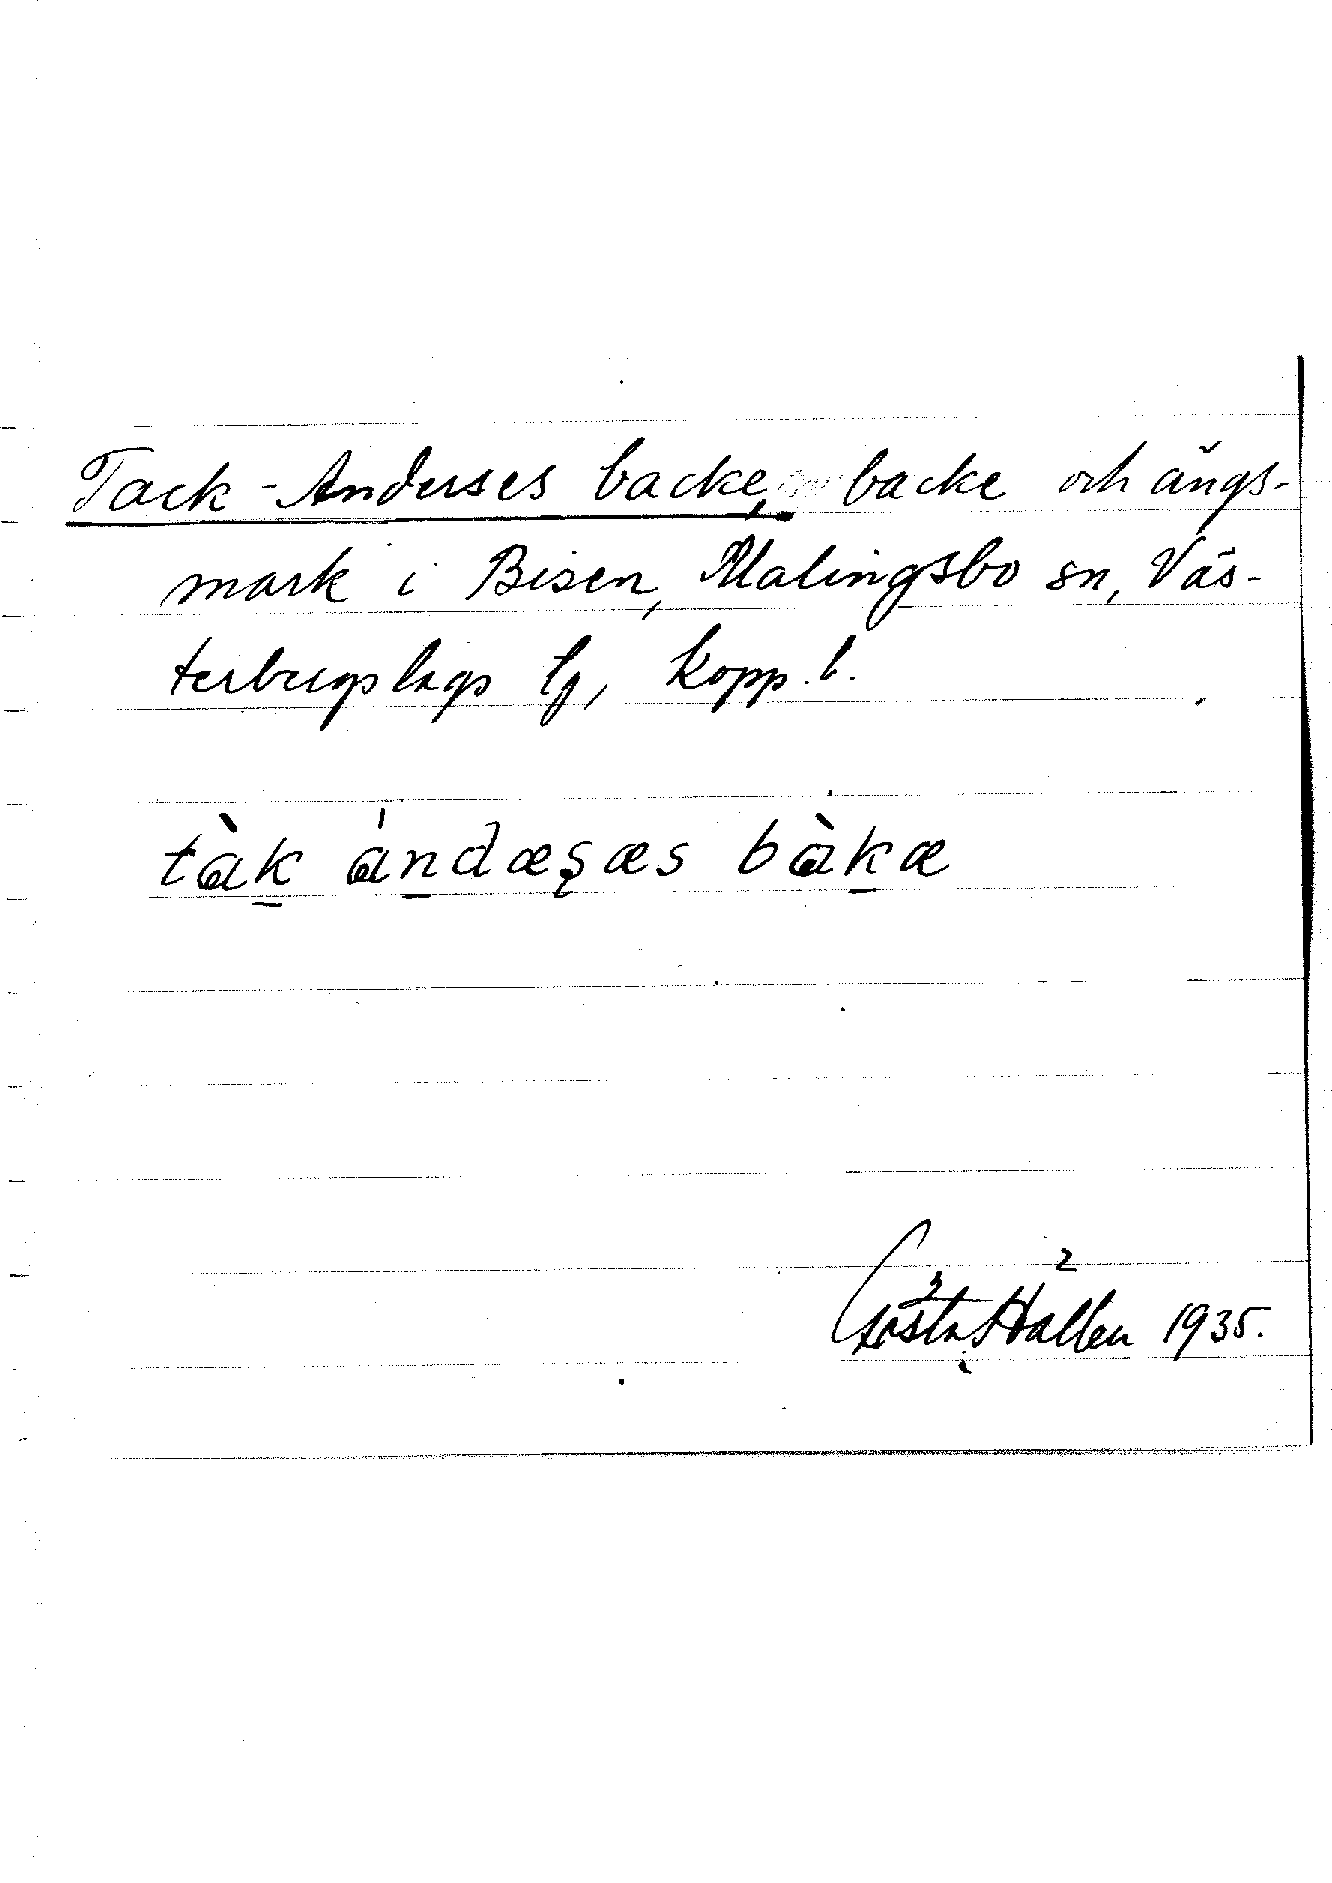 Tack-Anderses backe, backe och ängs-
mark i Bisen, Malingsbo sn, Väs-
terbergslags tg, Kopp. l.
tàk ándæşæs bàkæ
Gösta Hallen 1935.